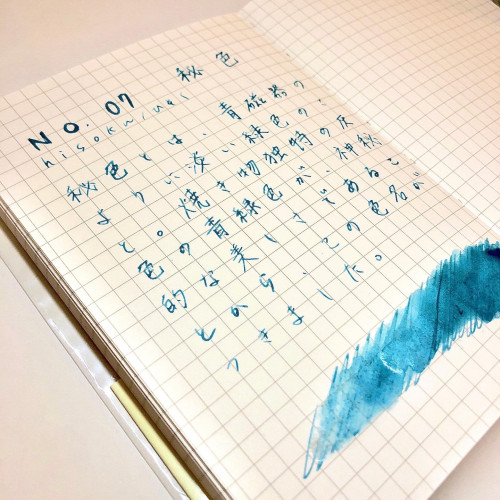 No. 07 秘色
秘色とは、青磁器の
ように淡い緑色のこ
と。焼き物独特の灰
色の青緑色が、神秘
的な美しさであるこ
とから、この色名が
つきました。